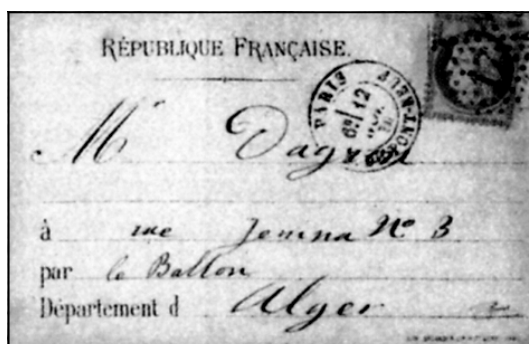 RÉPUBLIQUE FRANÇAISE.
PARIS
6E/ 12
Mr
à rue Jemna No 3
par le Ballon
Département d Alger